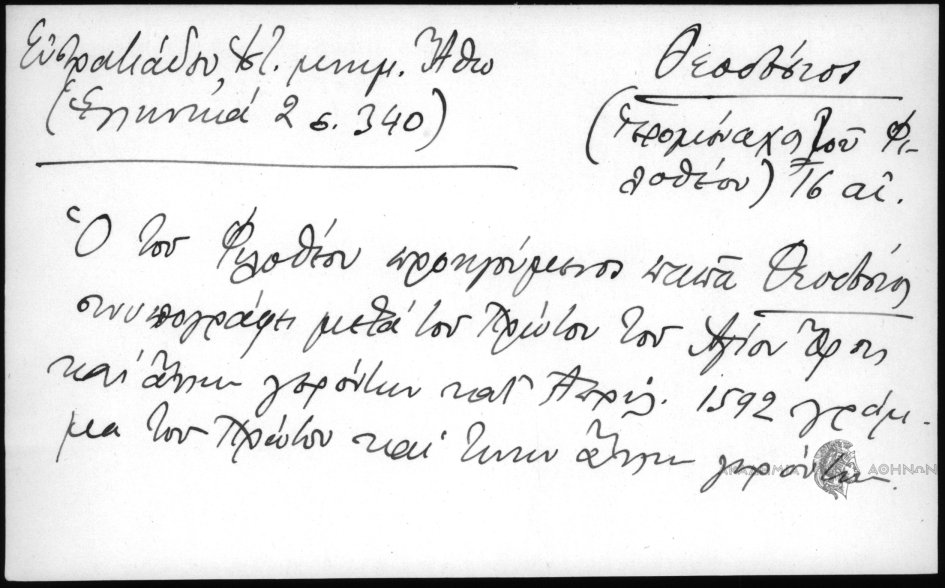 Εὐστρατιάδου, Ἱστ. μνημ. Ἄθω
(Ἑλληνικά 2 σ. 340)
Θεοδόσιος
(ἱερομόναχος τοῦ Φι-
λοθέου) 16 αἰ.
Ὁ τοῦ Φιλοθέου προηγούμενος παπᾶ Θεοδόσιος
συνυπογράφει μετά τοῦ Πρώτου τοῦ Ἁγίου Ὄρους
καί ἄλλων γερόντων κατ' Ἀπρίλ. 1592 γράμ-
μα τοῦ Πρώτου καί των ἄλλων γερόντων.
ΑΚΑΔΗΜΙΑ ΑΘΗΝΩΝ